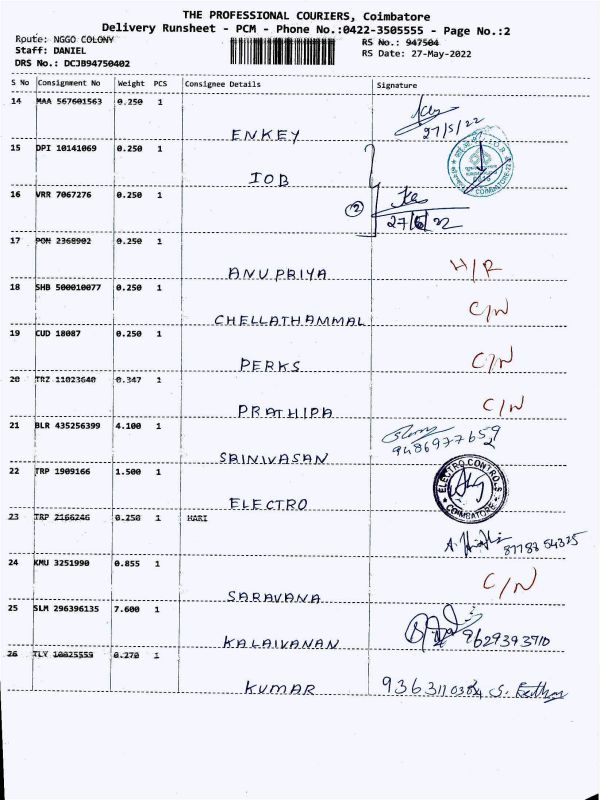 THE PROFESSIONAL COURIERS, Coimbatore
Delivery Runsheet - PCM - Phone No.:0422-3505555 - Page No.:2
Route: NGGO COLONY
RS No.: 947504
Staff: DANIEL
RS Date: 27-May-2022
DRS No.: DCJB94750402
S No Consignment No Weight PCS Consignee Details Signature
14 MAA 567601563 0.250 1
ENKEY 27/5/22
15 DPI 10141069 0.250 1
IOB
COIMBATORE-22
16 VRR 7067276 0.250 1
2
27/5/22
17 PON 2368902 0.250 1
ANUPRIYA H/R
18 SHB 500010077 0.250 1
CHELLATHAMMAL C/N
19 CUD 18087 0.250 1
PERKS C/N
20 TRZ 11023640 0.347 1
PRATHIPA C/N
21 BLR 435256399 4.100 1
SRINIVASAN
22 TRP 1909166 1.500 1
ELECTRO CONTROLS
COIMBATORE
ELECTRO
23 TRP 2166246 0.250 1 HARI
24 KMU 3251990 0.855 1
SARAVANA C/N
25 SLM 296396135 7.600 1
KALAIVANAN 9629393710
26 TLY 10025559 0.270 1
KUMAR